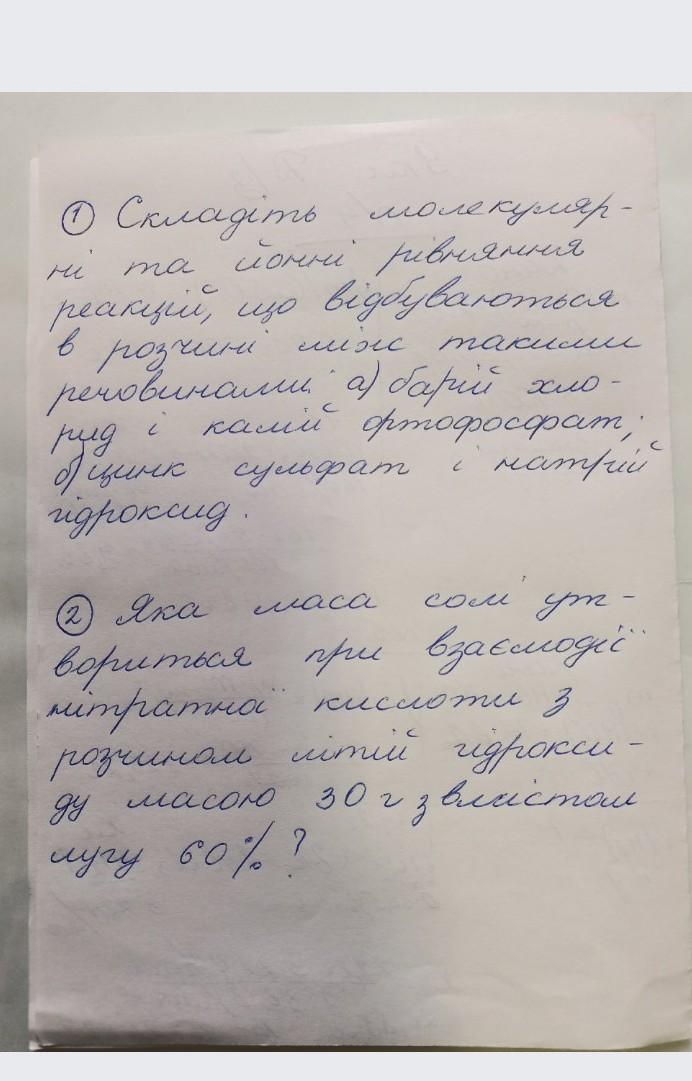 ① Складіть молекуляр-
ні та йонні рівняння
реакцій, що відбуваються
в розчині між такими
речовинами: а) барій хло-
рид і калій ортофосфат;
б) цинк сульфат і натрій
гідроксид.
② Яка маса солі ут-
вориться при взаємодії
нітратної кислоти з
розчином літій гідрокси-
ду масою 30 г з вмістом
лугу 60%?